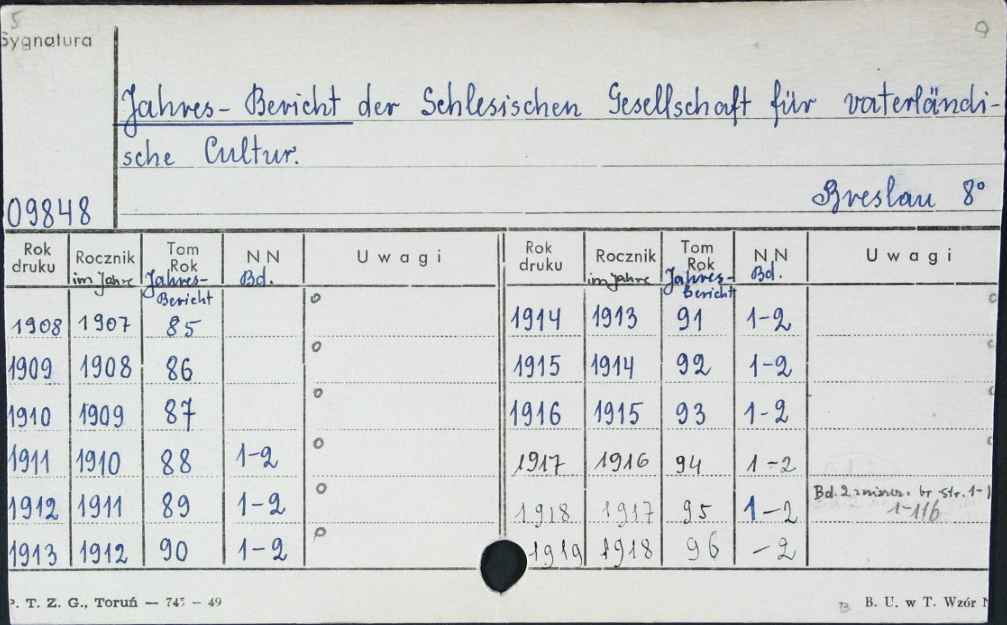 5
Sygnatura
Jahres-Bericht der Schlesischen Gesellschaft für vaterländi-
sche Cultur.
Breslau 8°
09848
Rok druku Rocznik im Jahre Tom Rok Jahres-Bericht NN Bd. Uwagi Rok druku Rocznik im Jahre Tom Rok Jahres-Bericht NN Bd. Uwagi
1908 1907 85 1914 1913 91 1-2
1909 1908 86 1915 1914 92 1-2
1910 1909 87 1916 1915 93 1-2
1911 1910 88 1-2 1917 1916 94 1-2
1912 1911 89 1-2 1918 1917 95 1-2 Bd. 2 br str. 1-
1-116
1913 1912 90 1-2 1919 1918 96 -2
P. T. Z. G., Toruń — 745 — 49 B. U. w T. Wzór